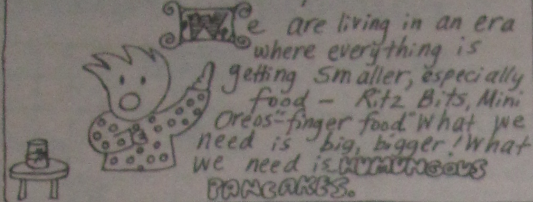 We are living in an era
where everything is
getting smaller, especially
food - Ritz Bits, Mini
Oreos "finger food" What we
need is big, bigger! What
we need is HUMUNGOUS
PANCAKES.